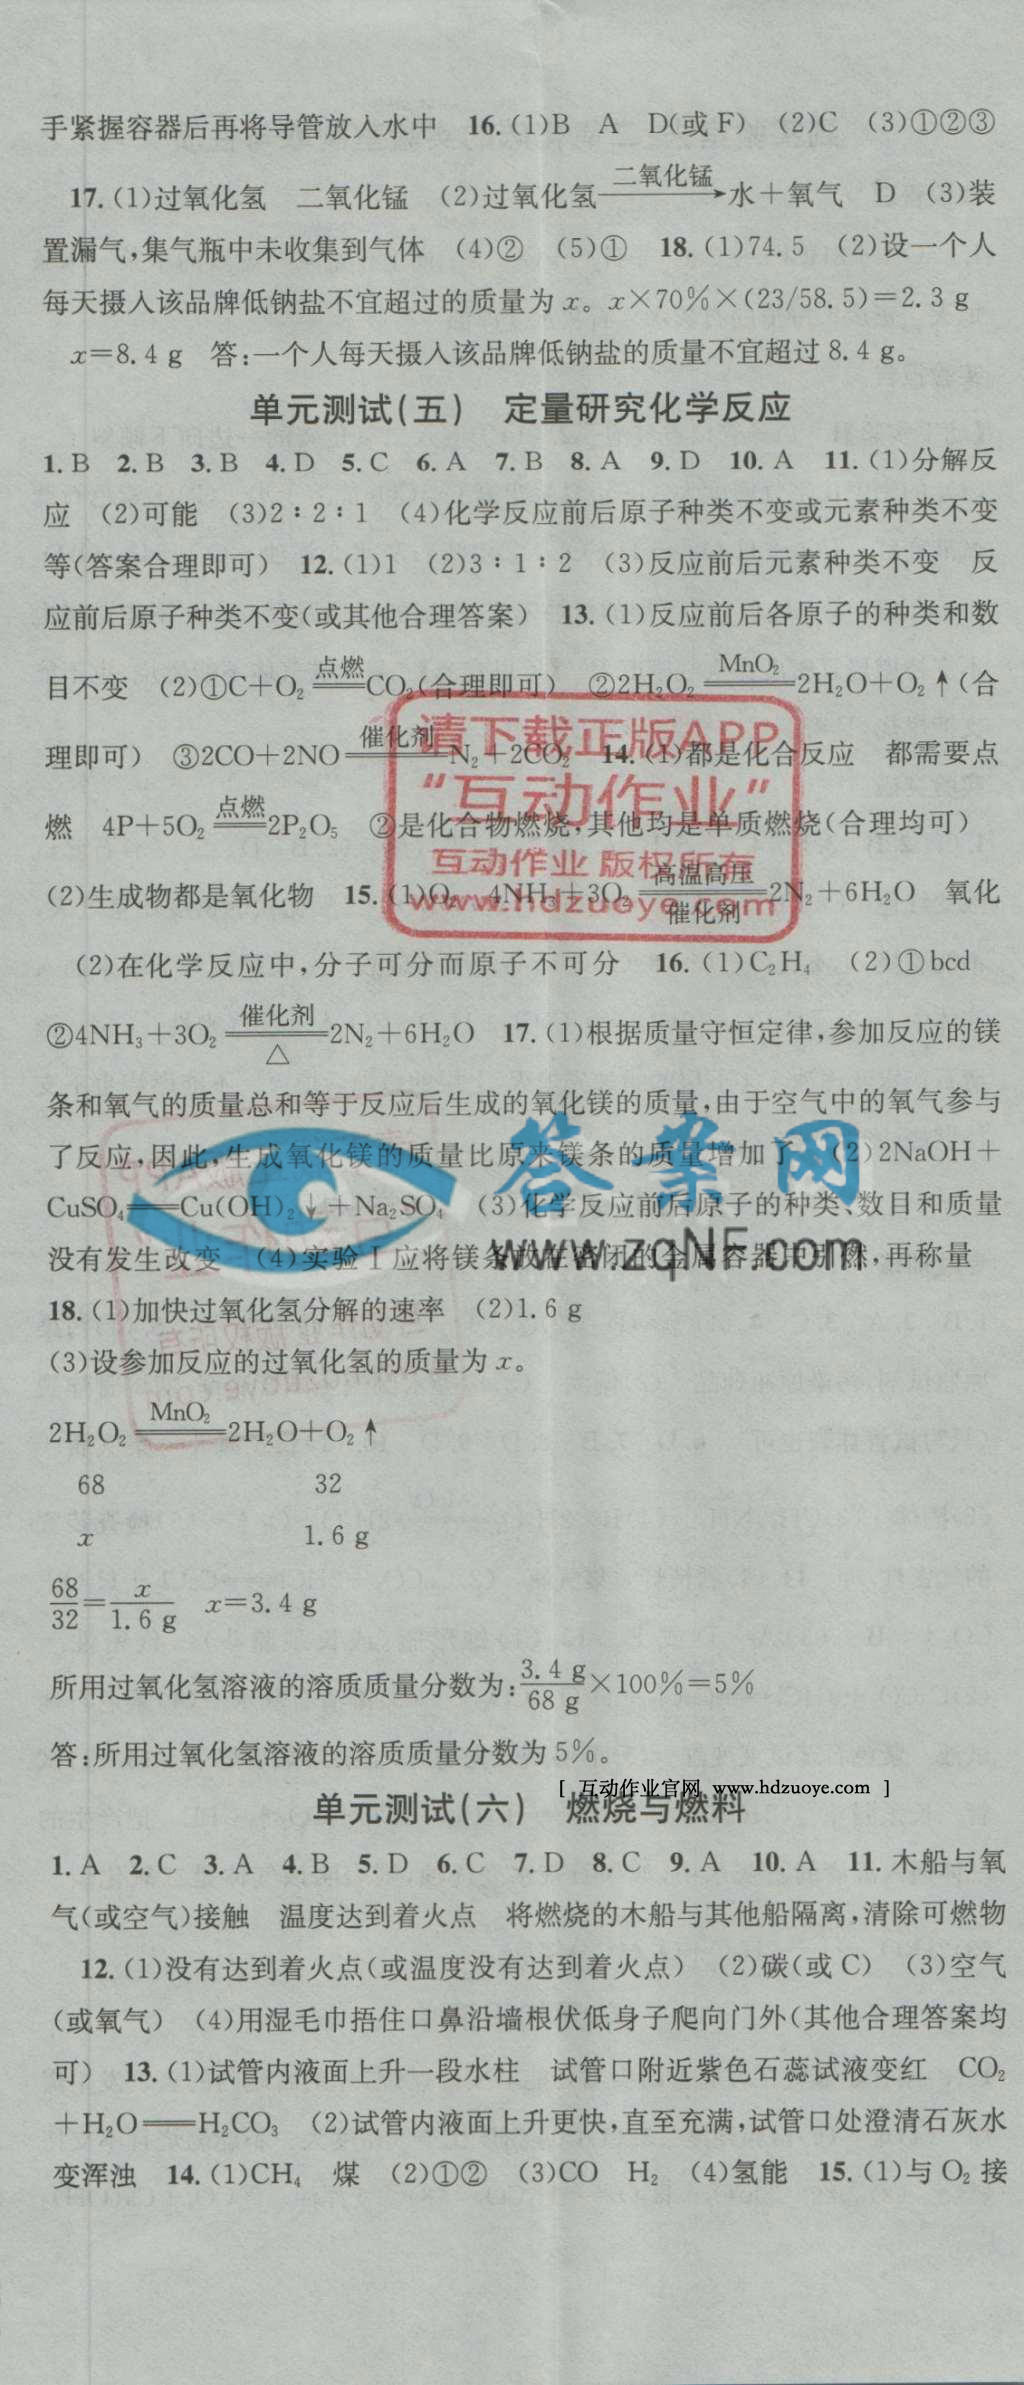 手紧握容器后再将导管放入水中 16.(1)B A D(或F) (2)C (3)①②③
17.(1)过氧化氢 二氧化锰 (2)过氧化氢 二氧化锰→ 水+氧气 D (3)装
置漏气,集气瓶中未收集到气体 (4)② (5)① 18.(1)74.5 (2)设一个人
每天摄入该品牌低钠盐不宜超过的质量为x。x×70%×(23/58.5)=2.3 g
x=8.4 g 答:一个人每天摄入该品牌低钠盐的质量不宜超过8.4 g。
单元测试(五) 定量研究化学反应
1.B 2.B 3.B 4.D 5.C 6.A 7.B 8.A 9.D 10.A 11.(1)分解反
应 (2)可能 (3)2∶2∶1 (4)化学反应前后原子种类不变或元素种类不变
等(答案合理即可) 12.(1)1 (2)3∶1∶2 (3)反应前后元素种类不变 反
应前后原子种类不变(或其他合理答案) 13.(1)反应前后各原子的种类和数
目不变 (2)①C+O₂ 点燃══ CO₂(合理即可) ②2H₂O₂ MnO₂══ 2H₂O+O₂↑(合
理即可) ③2CO+2NO 催化剂══ N₂+2CO₂ 14.(1)都是化合反应 都需要点
燃 4P+5O₂ 点燃══ 2P₂O₅ ②是化合物燃烧,其他均是单质燃烧(合理均可)
(2)生成物都是氧化物 15.(1)O₂ 4NH₃+3O₂ 高温高压══催化剂 2N₂+6H₂O 氧化
(2)在化学反应中,分子可分而原子不可分 16.(1)C₂H₄ (2)①bcd
②4NH₃+3O₂ 催化剂══△ 2N₂+6H₂O 17.(1)根据质量守恒定律,参加反应的镁
条和氧气的质量总和等于反应后生成的氧化镁的质量,由于空气中的氧气参与
了反应,因此,生成氧化镁的质量比原来镁条的质量增加了 (2)2NaOH+
CuSO₄══Cu(OH)₂↓+Na₂SO₄ (3)化学反应前后原子的种类、数目和质量
没有发生改变 (4)实验Ⅰ应将镁条放在密闭的金属容器中引燃,再称量
18.(1)加快过氧化氢分解的速率 (2)1.6 g
(3)设参加反应的过氧化氢的质量为x。
2H₂O₂ MnO₂══ 2H₂O+O₂↑
68 32
x 1.6 g
68/32=x/1.6 g x=3.4 g
所用过氧化氢溶液的溶质质量分数为:3.4 g/68 g×100%=5%
答:所用过氧化氢溶液的溶质质量分数为5%。
[ 互动作业官网 www.hdzuoye.com ]
单元测试(六) 燃烧与燃料
1.A 2.C 3.A 4.B 5.D 6.C 7.D 8.C 9.A 10.A 11.木船与氧
气(或空气)接触 温度达到着火点 将燃烧的木船与其他船隔离,清除可燃物
12.(1)没有达到着火点(或温度没有达到着火点) (2)碳(或C) (3)空气
(或氧气) (4)用湿毛巾捂住口鼻沿墙根伏低身子爬向门外(其他合理答案均
可) 13.(1)试管内液面上升一段水柱 试管口附近紫色石蕊试液变红 CO₂
+H₂O══H₂CO₃ (2)试管内液面上升更快,直至充满,试管口处澄清石灰水
变浑浊 14.(1)CH₄ 煤 (2)①② (3)CO H₂ (4)氢能 15.(1)与O₂接
请下载正版APP
“互动作业”
互动作业 版权所有
www.hdzuoye.com
答案网
www.zqNF.com